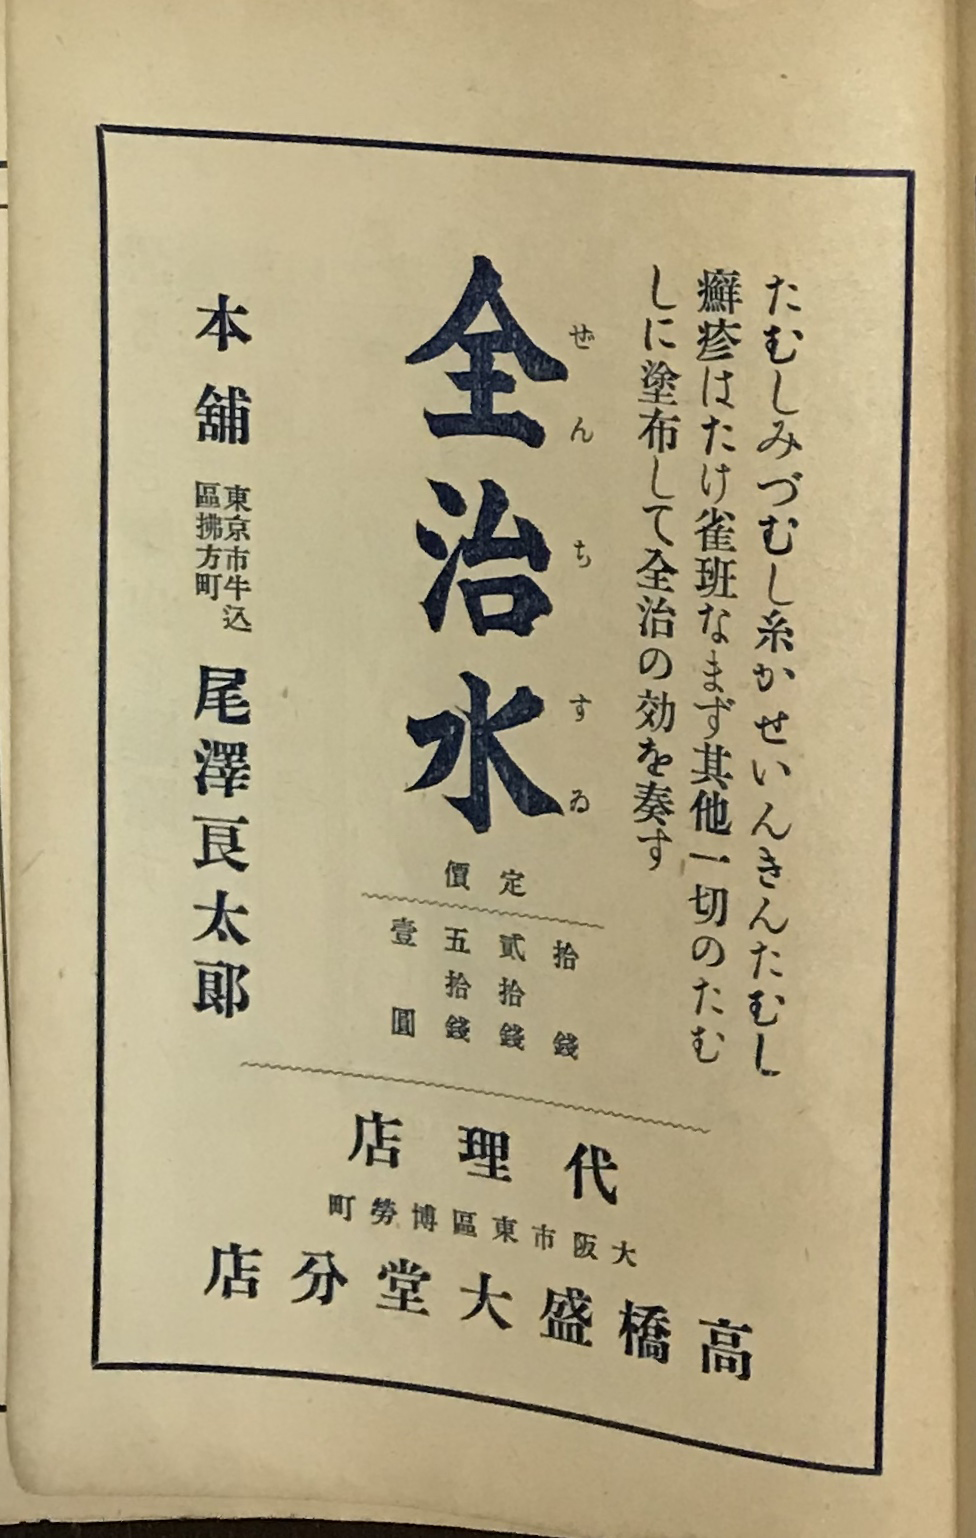 たむしみづむし糸かせいんきんたむし
癬疹はたけ雀班なまず其他一切のたむ
しに塗布して全治の効を奏す
ぜんちすゐ
全治水
定價
拾錢
貳拾錢
五拾錢
壹圓
本舖
東京市牛込
區拂方町
尾澤良太郎
代理店
大阪市東區博勞町
高橋盛大堂分店